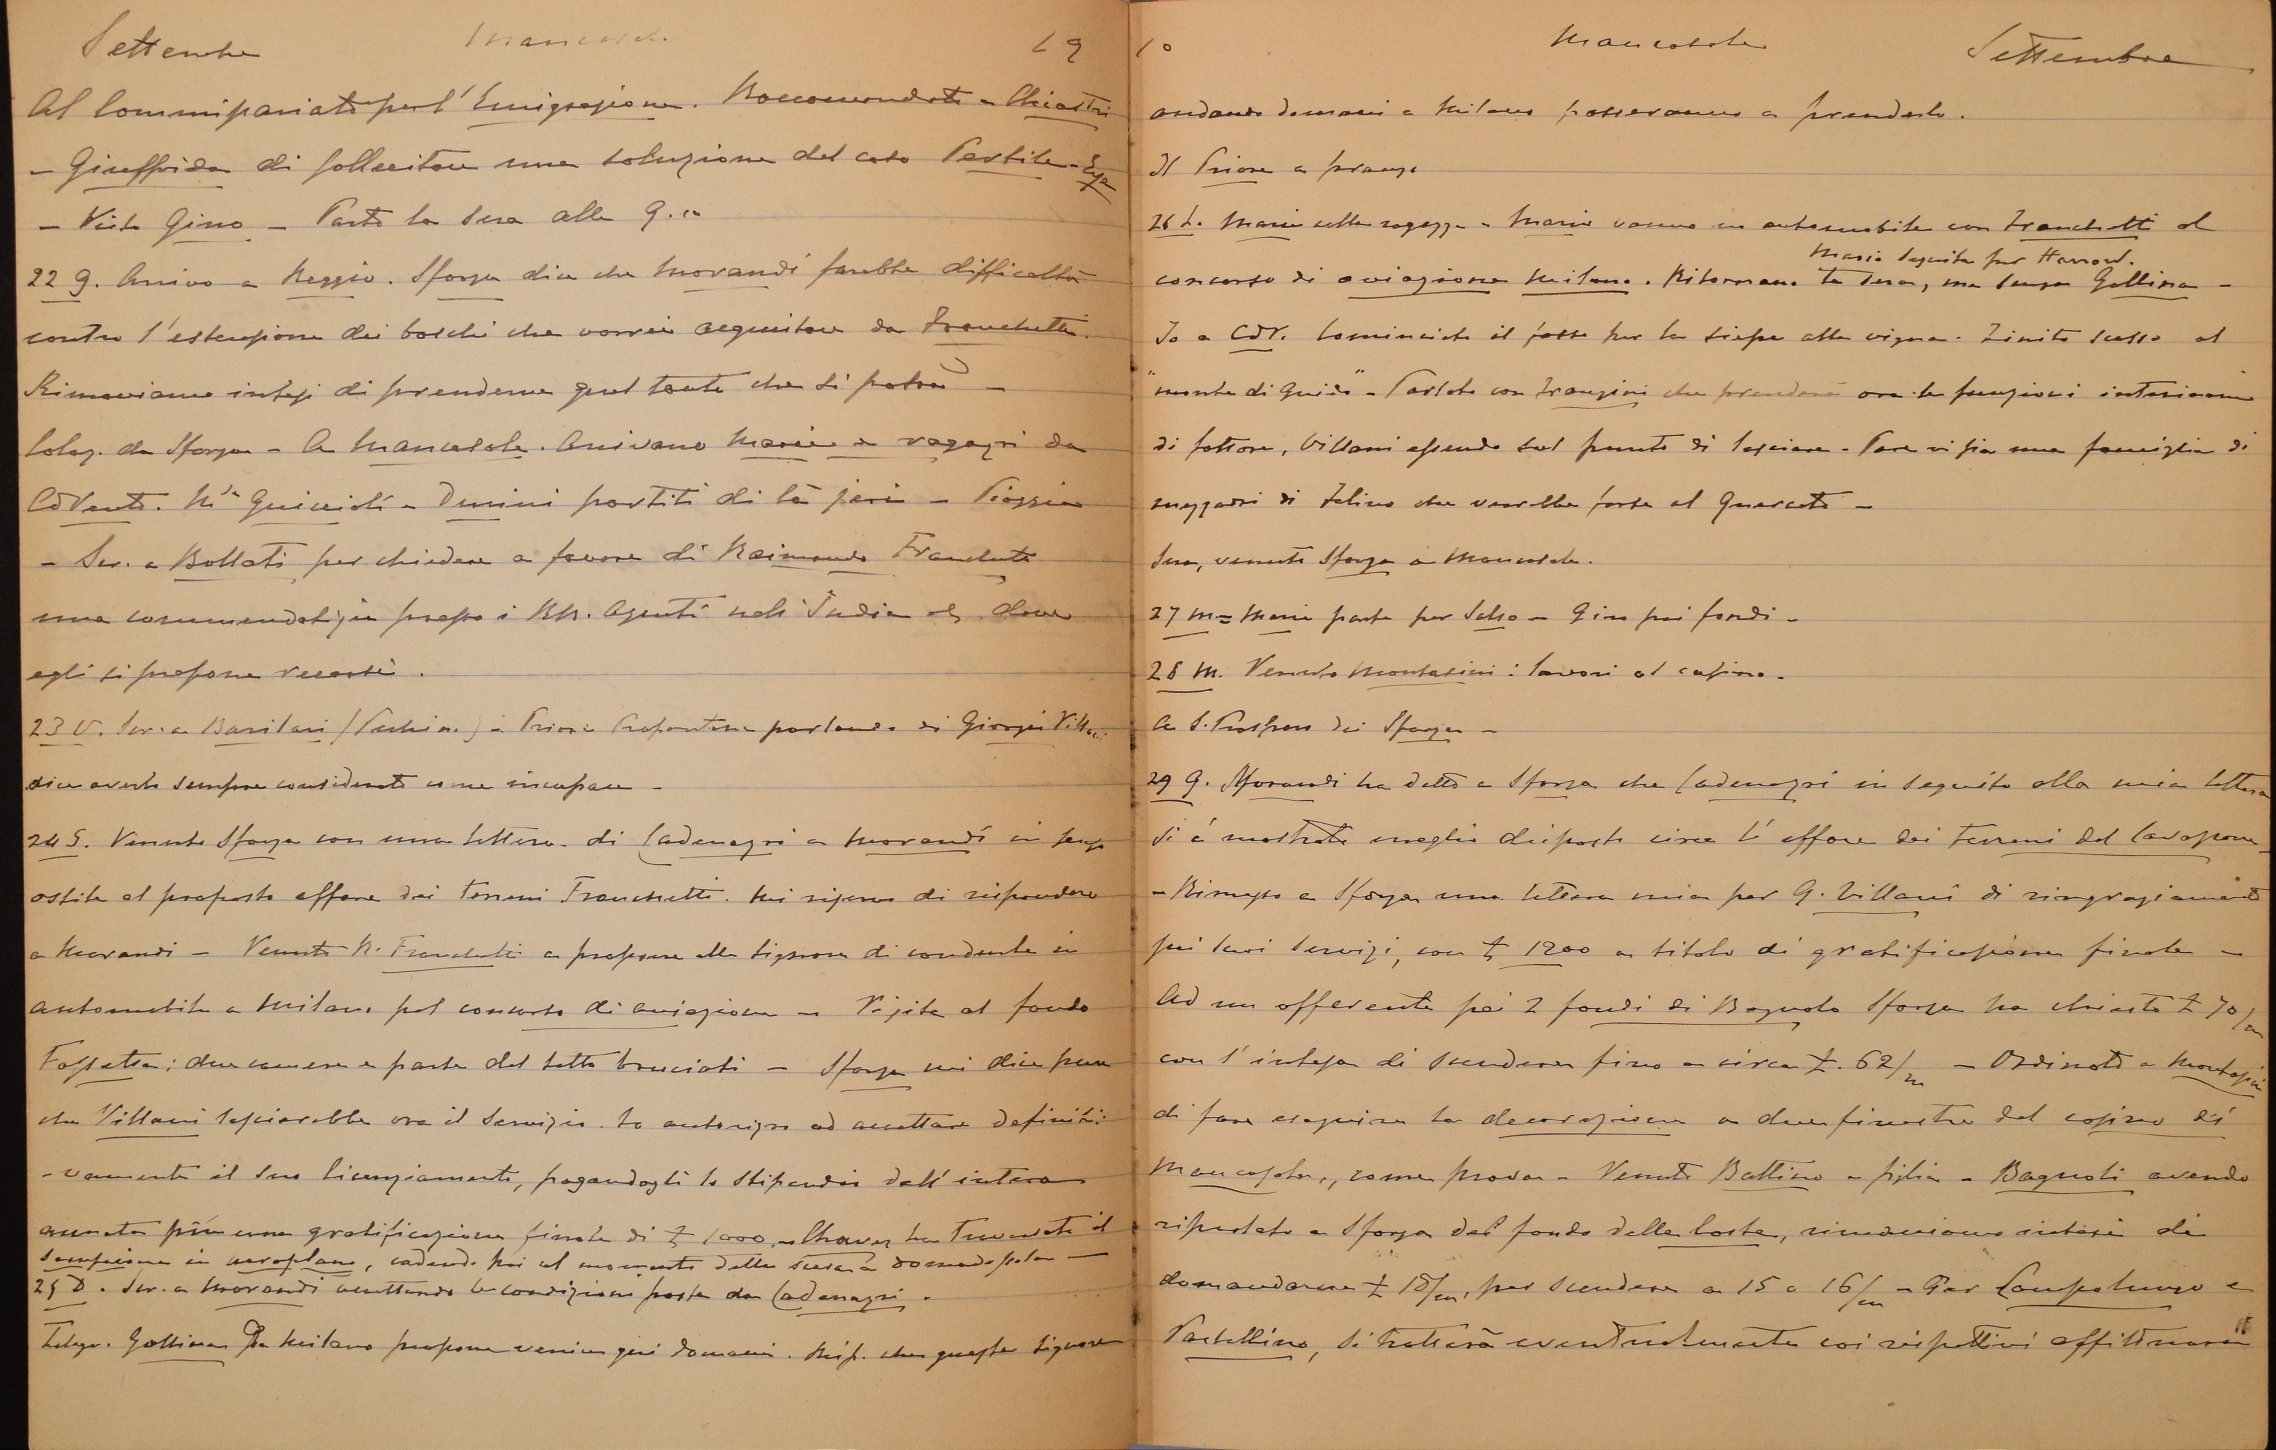 Settembre Mancasale 19
Al Commissariato per l'Emigrazione. Raccomandato a Chiostri
- Giuffrida di sollecitare una soluzione del caso Pertile
- Visto Gino - Parto la sera alle 9.
22 G. Arrivo a Reggio. Sforza dice che Morandi farebbe difficoltà
contro l'estensione dei boschi che vorrei acquistare da Franchetti.
Rimaniamo intesi di prenderne quel tanto che si potrà -
Colaz. da Sforza - A Mancasale. Arrivano Maria e ragazzi da
CdVento. Guiccioli e Dmini partiti di là jeri - Pioggia
- Scr. a Bollati per chiedere a favore di Raimondo Franchetti
una commendatizia presso i RR. Agenti nell' India dove
egli si propone recarsi.
23 V. Scr. a Barilari - Priore parlando di Giorgio Villani
dice averlo sempre considerato come incapace -
24 S. Venuto Sforza con una lettera di Cadenazzi a Morandi in senso
ostile al proposto affare dei terreni Franchetti. Mi riservo di rispondere
a Morandi - Venuto R. Franchetti a proporre alle signore di condurle in
automobile a Milano pel concorso di aviazione - Visita al fondo
Fossetta: due camere e parte del tetto bruciati - Sforza mi dice pure
che Villani lascierebbe ora il servizio. Lo autorizzo ad accettare definiti-
-vamente il suo licenziamento, pagandogli lo stipendio dell'intera
annata più una gratificazione finale di £ 1000. - Chavez ha traversato il
Sempione in aeroplano, cadendo poi al momento della scesa a Domodossola -
25 D. Scr. a Morandi accettando le condizioni poste da Cadenazzi.
Telegr. Gallina da Milano propone venire qui domani. Risp. che queste signore
10 Mancasale Settembre
andando domani a Milano passeranno a prenderlo.
Il Priore a pranzo
26 L. Maria colle ragazze e Mario vanno in automobile con Franchetti al
Mario seguita per Harrow.
concorso di aviazione Milano. Ritornano la sera, ma senza Gallina -
Io a CdV. Cominciato il fosso per la siepe alla vigna. Finito scasso al
"monte di Guido" - Parlato con Franzini che prenderà ora le funzioni interinarie
di fattore, Villani essendo sul punto di lasciare - Pare vi sia una famiglia di
mezzadri di Felino che verrebbe forse al Querceto -
Sera, venuto Sforza a Mancasale.
27 M = Maria parte per Salso - Giro pei fondi -
28 M. Venuto Montasini: lavori al casino.
A S. Prospero dai Sforza -
29 G. Morandi ha detto a Sforza che Cadenazzi in seguito alla mia lettera
si è mostrato meglio disposto circa l'affare dei terreni del Cavazzone
- Rimesso a Sforza una lettera mia per G. Villani di ringraziamento
pei suoi servizi, con £ 1200 a titolo di gratificazione finale -
Ad un offerente pei 2 fondi di Bagnolo Sforza ha chiesto £ 70/m
con l'intesa di scendere fino a circa £. 62/m - Ordinato a Montasini
di fare eseguire la decorazione a due finestre del casino di
Mancasale, come prova - Venuto Battino e figlia - Bagnoli avendo
riparlato a Sforza del fondo delle Coste, rimaniamo intesi di
domandarne £ 18/m, per scendere a 15 o 16/m - Per Campolungo e
Pratellino, si tratterà eventualmente coi rispettivi affittuari